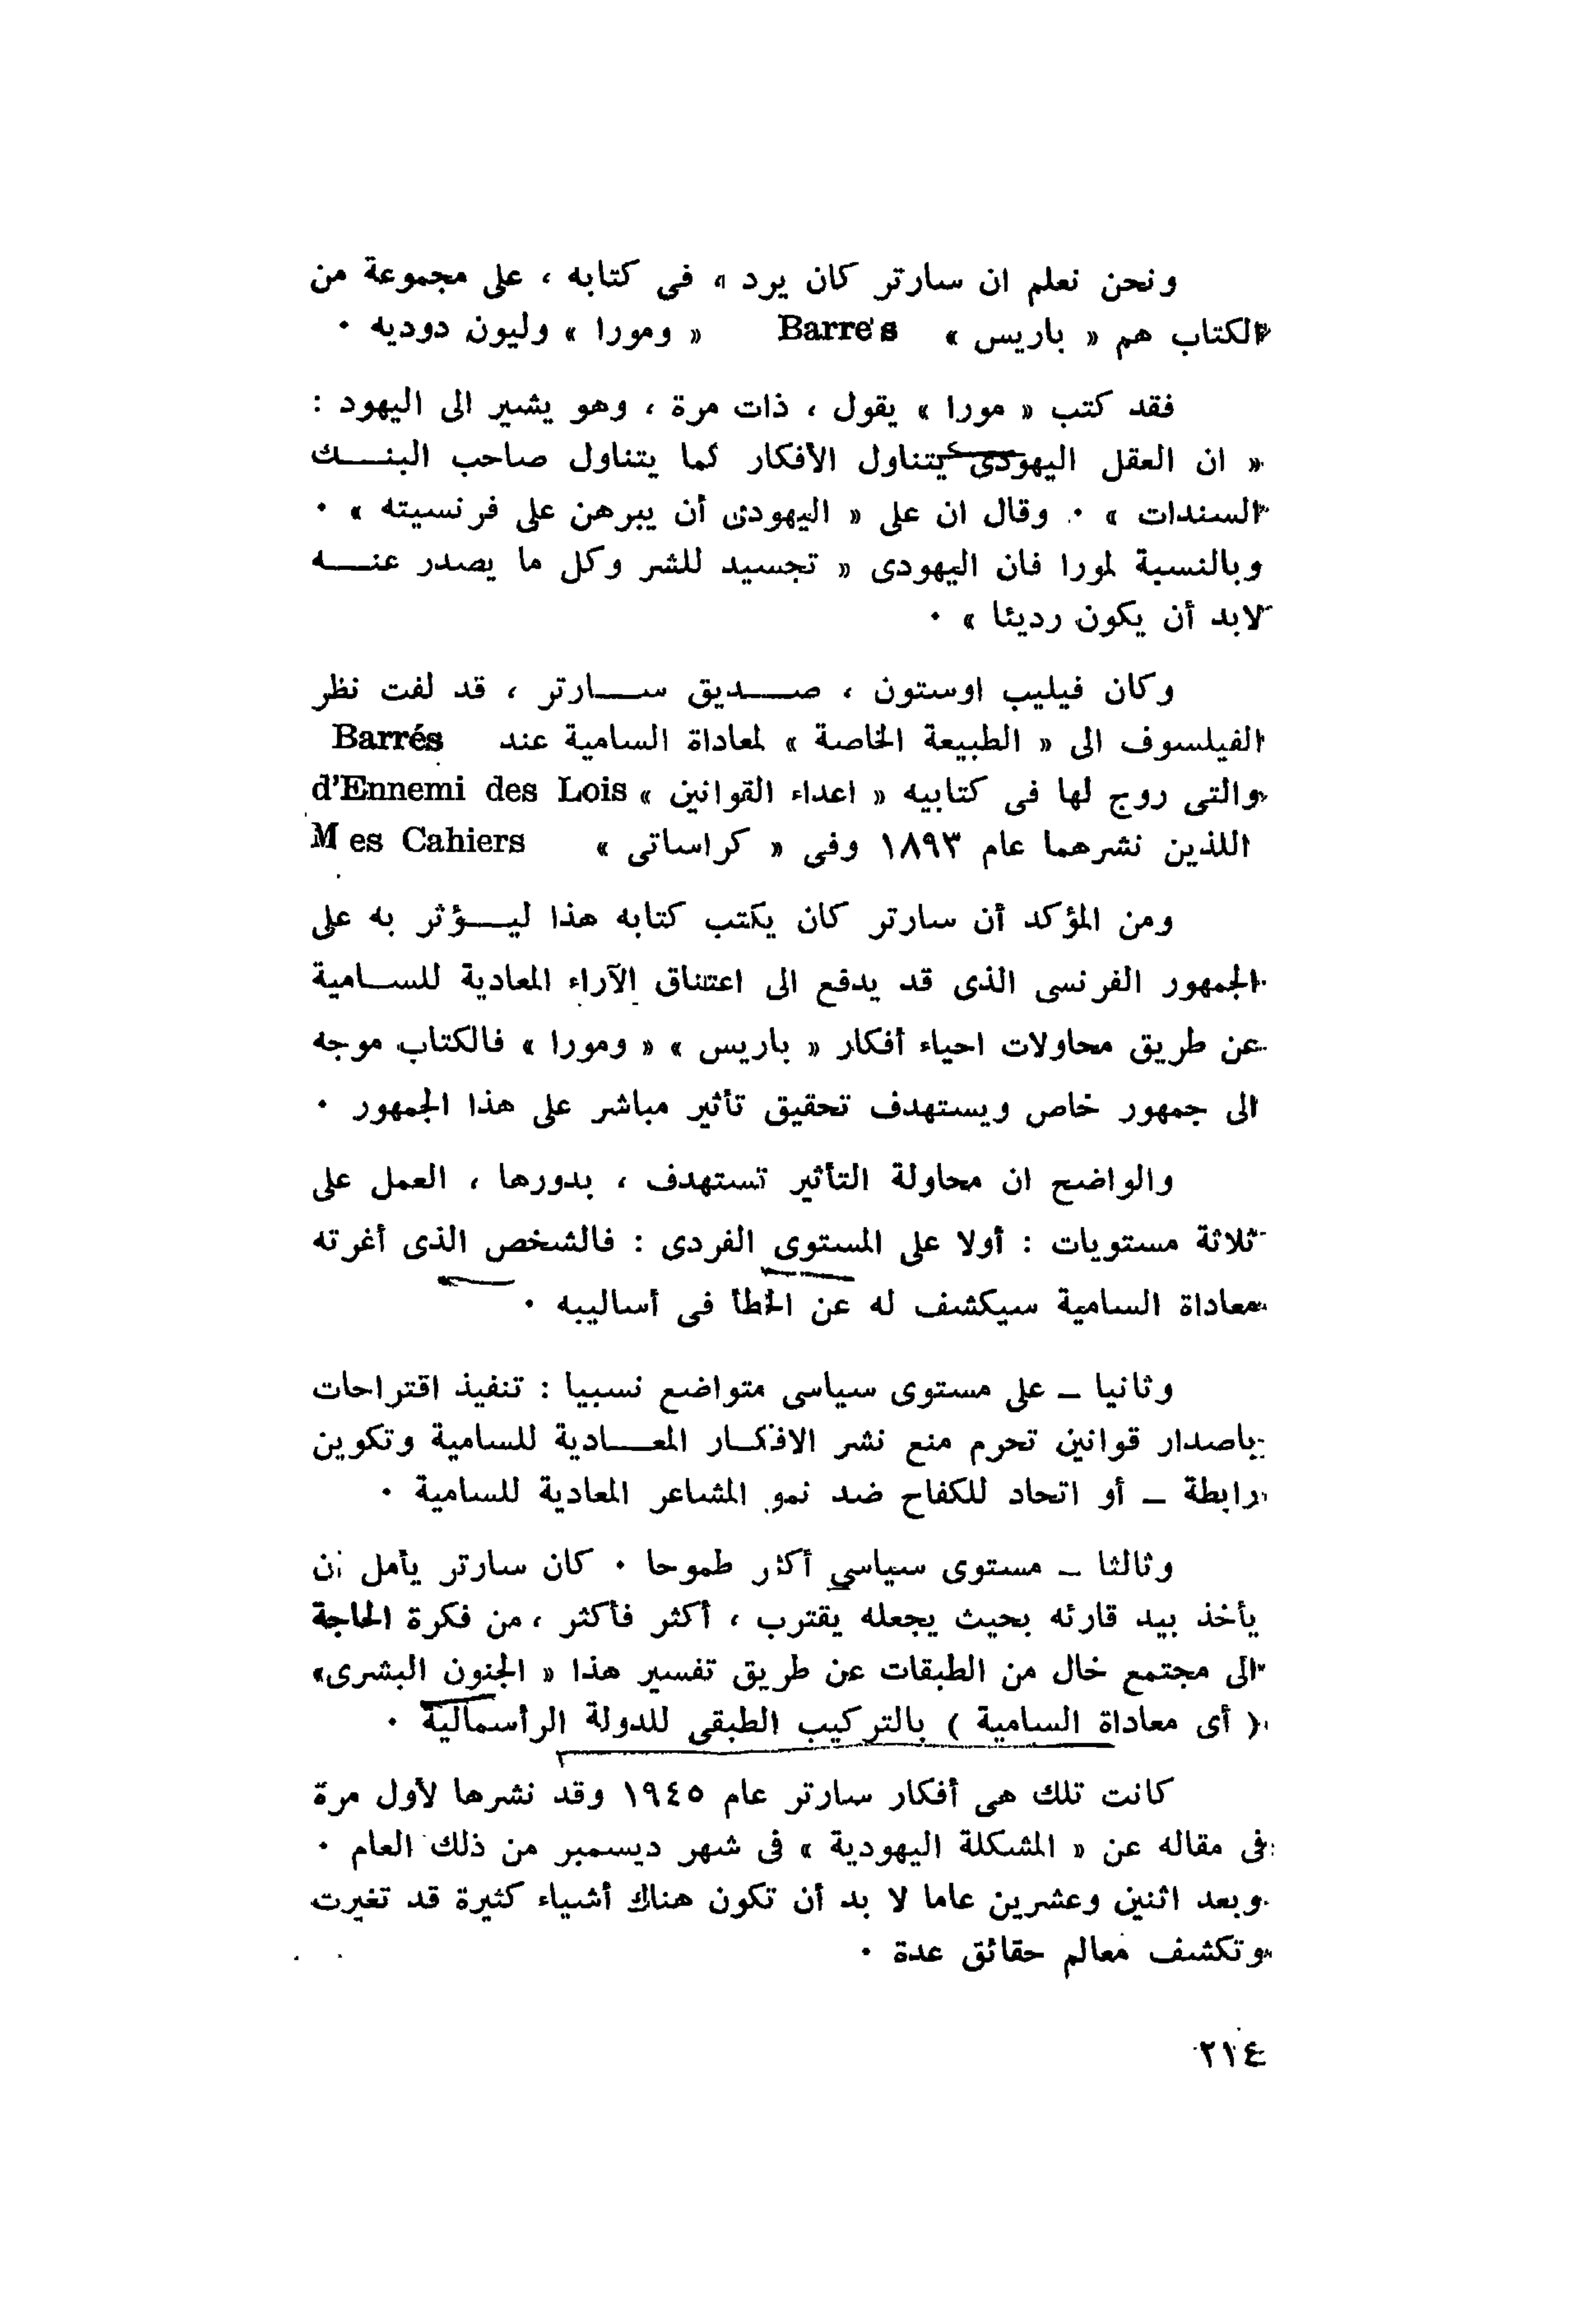 ونحن نعلم ان سارتر كان يرد ، فى كتابه ، على مجموعة من
الكتاب هم « باريس » Barre's « ومورا » وليون دوديه ٠
فقد كتب « مورا » يقول ، ذات مرة ، وهو يشير الى اليهود :
« ان العقل اليهودى يتناول الأفكار كما يتناول صاحب البنك
السندات » ٠ وقال ان على « اليهودى أن يبرهن على فرنسيته » ٠
وبالنسبة لمورا فان اليهودى « تجسيد للشر وكل ما يصدر عنه
لابد أن يكون رديئا » ٠
وكان فيليب اوستون ، صديق سارتر ، قد لفت نظر
الفيلسوف الى « الطبيعة الخاصة » لمعاداة السامية عند Barrés
والتى روج لها فى كتابيه « اعداء القوانين » d'Ennemi des Lois
اللذين نشرهما عام ١٨٩٣ وفى « كراساتى » Mes Cahiers
ومن المؤكد أن سارتر كان يكتب كتابه هذا ليؤثر به على
الجمهور الفرنسى الذى قد يدفع الى اعتناق الآراء المعادية للسامية
عن طريق محاولات احياء أفكار « باريس » « ومورا » فالكتاب موجه
الى جمهور خاص ويستهدف تحقيق تأثير مباشر على هذا الجمهور ٠
والواضح ان محاولة التأثير تستهدف ، بدورها ، العمل على
ثلاثة مستويات : أولا على المستوى الفردى : فالشخص الذى أغرته
معاداة السامية سيكشف له عن الخطأ فى أساليبه ٠
وثانيا ــ على مستوى سياسى متواضع نسبيا : تنفيذ اقتراحات
باصدار قوانين تحرم منع نشر الافكار المعادية للسامية وتكوين
رابطة ــ أو اتحاد للكفاح ضد نمو المشاعر المعادية للسامية ٠
وثالثا ــ مستوى سياسي أكثر طموحا ٠ كان سارتر يأمل ان
يأخذ بيد قارئه بحيث يجعله يقترب ، أكثر فأكثر ، من فكرة الحاجة
الى مجتمع خال من الطبقات عن طريق تفسير هذا « الجنون البشرى »
( أى معاداة السامية ) بالتركيب الطبقى للدولة الرأسمالية ٠
كانت تلك هى أفكار سارتر عام ١٩٤٥ وقد نشرها لأول مرة
فى مقاله عن « المشكلة اليهودية » فى شهر ديسمبر من ذلك العام ٠
وبعد اثنين وعشرين عاما لا بد أن تكون هناك أشياء كثيرة قد تغيرت
وتكشف معالم حقائق عدة ٠
٢١٤